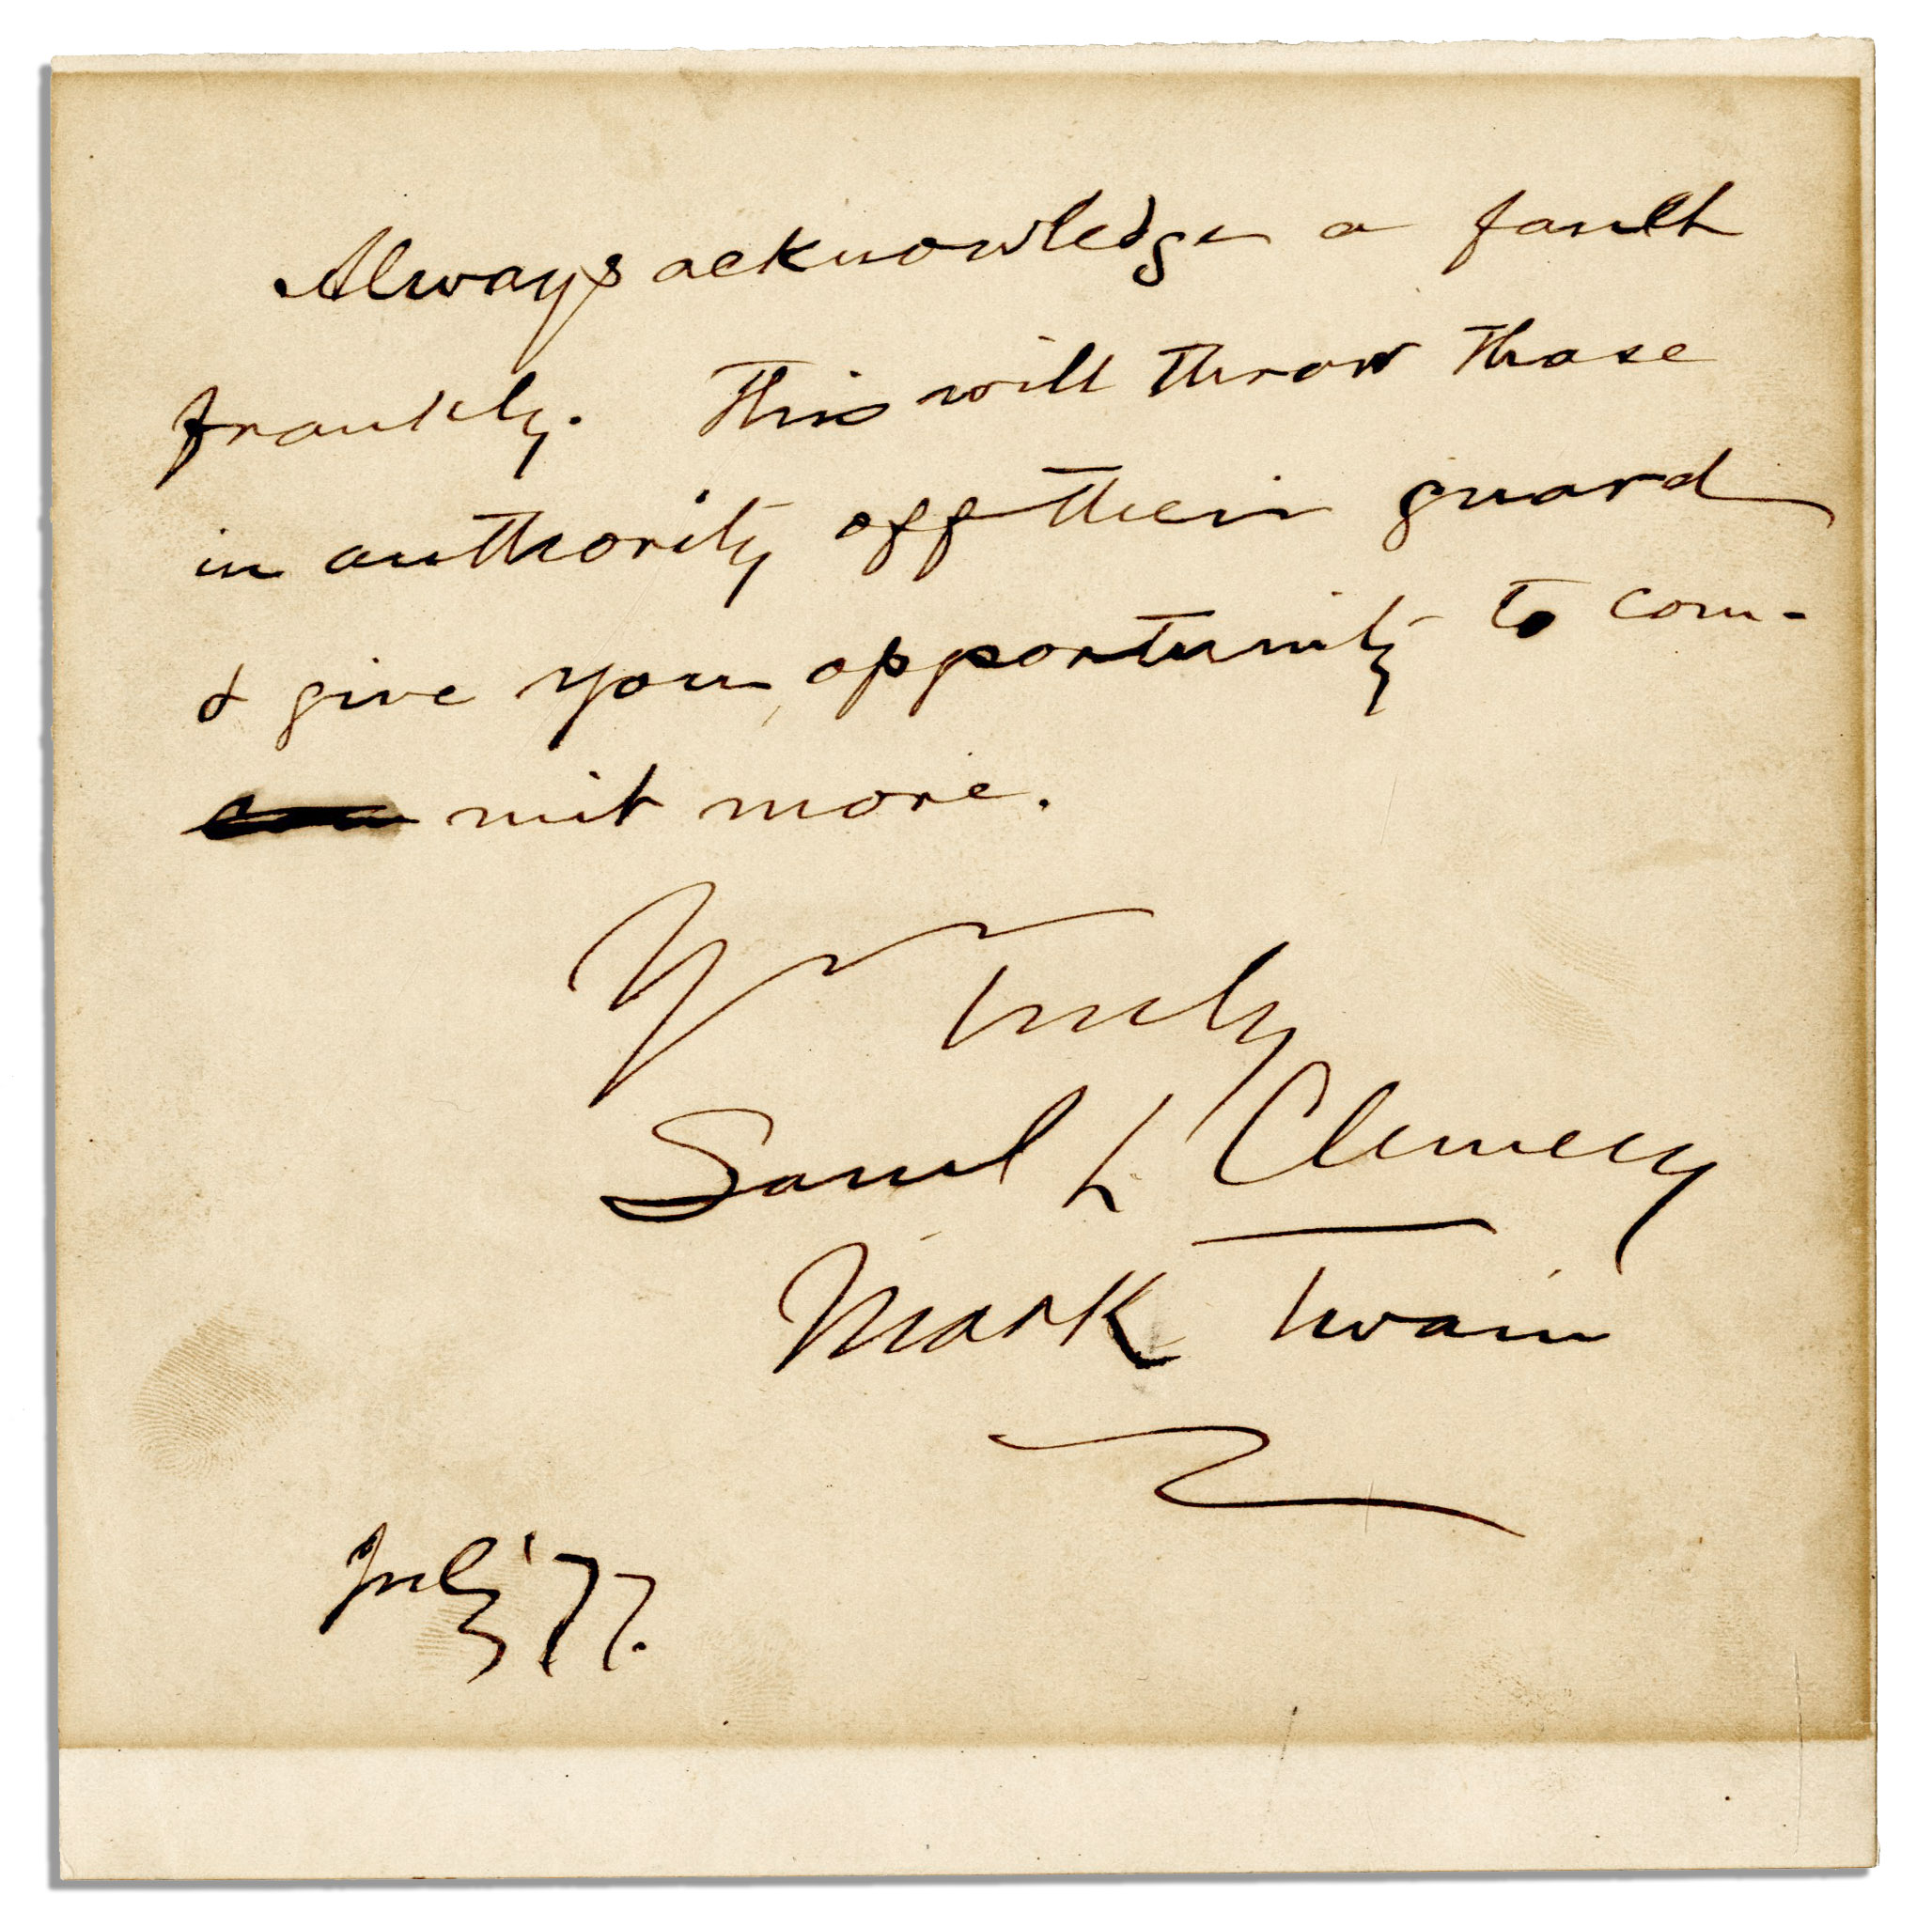 Always acknowledge a fault
frankly. This will throw those
in authority off their guard
& give you opportunity to com-
mit more.
Yrs Truly
Saml L. Clemens
Mark Twain
July '77.